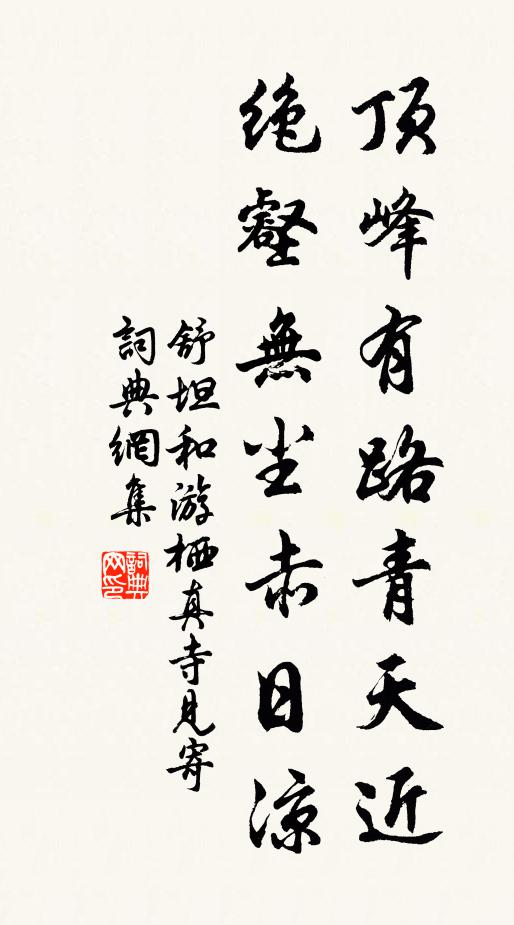 顶峰有路青天近
绝壑無尘赤日凉
舒坦和游栖真寺見寄
詞典網集
詞典网印